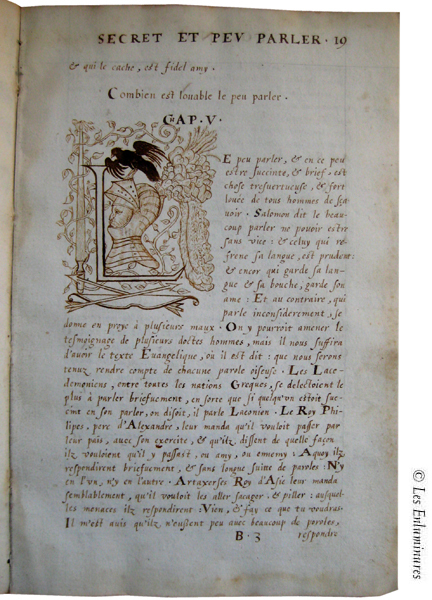 SECRET ET PEV PARLER · 19
& qui le cache, est fidel amy ·
Combien est louable le peu parler ·
CHAP · V ·
LE peu parler, & en ce peu
estre succinte, & brief, est
chose tresvertueuse, & fort
louée de tous hommes de sça
voir · Salomon dit le beau-
coup parler ne pouvoir estre
sans vice : & celuy qui re-
frene sa langue, est prudent :
& encor qui garde sa lan-
gue & sa bouche, garde son
ame : Et au contraire, qui
parle inconsiderement, se
donne en proye à plusieurs maux · On y pourroit amener le
tesmoignage de plusieurs doctes hommes, mais Il nous suffira
d'avoir le texte Euangelique, où il est dit : que nous serons
tenuz rendre compte de chacune parole oiseuse · Les Lace-
demoniens, entre toutes les nations Greques, se delectoient le
plus à parler briefuement, en sorte que si quelqu'un estoit suc-
cint en son parler, on disoit, il parle Laconien · Le Roy Phi-
lipes, pere d'Alexandre, leur manda qu'il vouloit passer par
leur païs, avec son exercite, & qu'ilz dissent de quelle façon
ilz vouloient qu'il y passast, ou amy, ou ennemy : Aquoy ilz
respondirent briefuement, & sans longue suite de paroles : N'y
en l'vn, n'y en l'autre · Artaxerses Roy d'Asie leur manda
semblablement, qu'il vouloit les aller sacager, & piller : ausquel-
les menaces ilz respondirent : Vien, & fay ce que tu voudras ·
Il m'est avis qu'ilz n'eussent peu avec beaucoup de paroles,
B · 3 respondre
© Les Enluminures